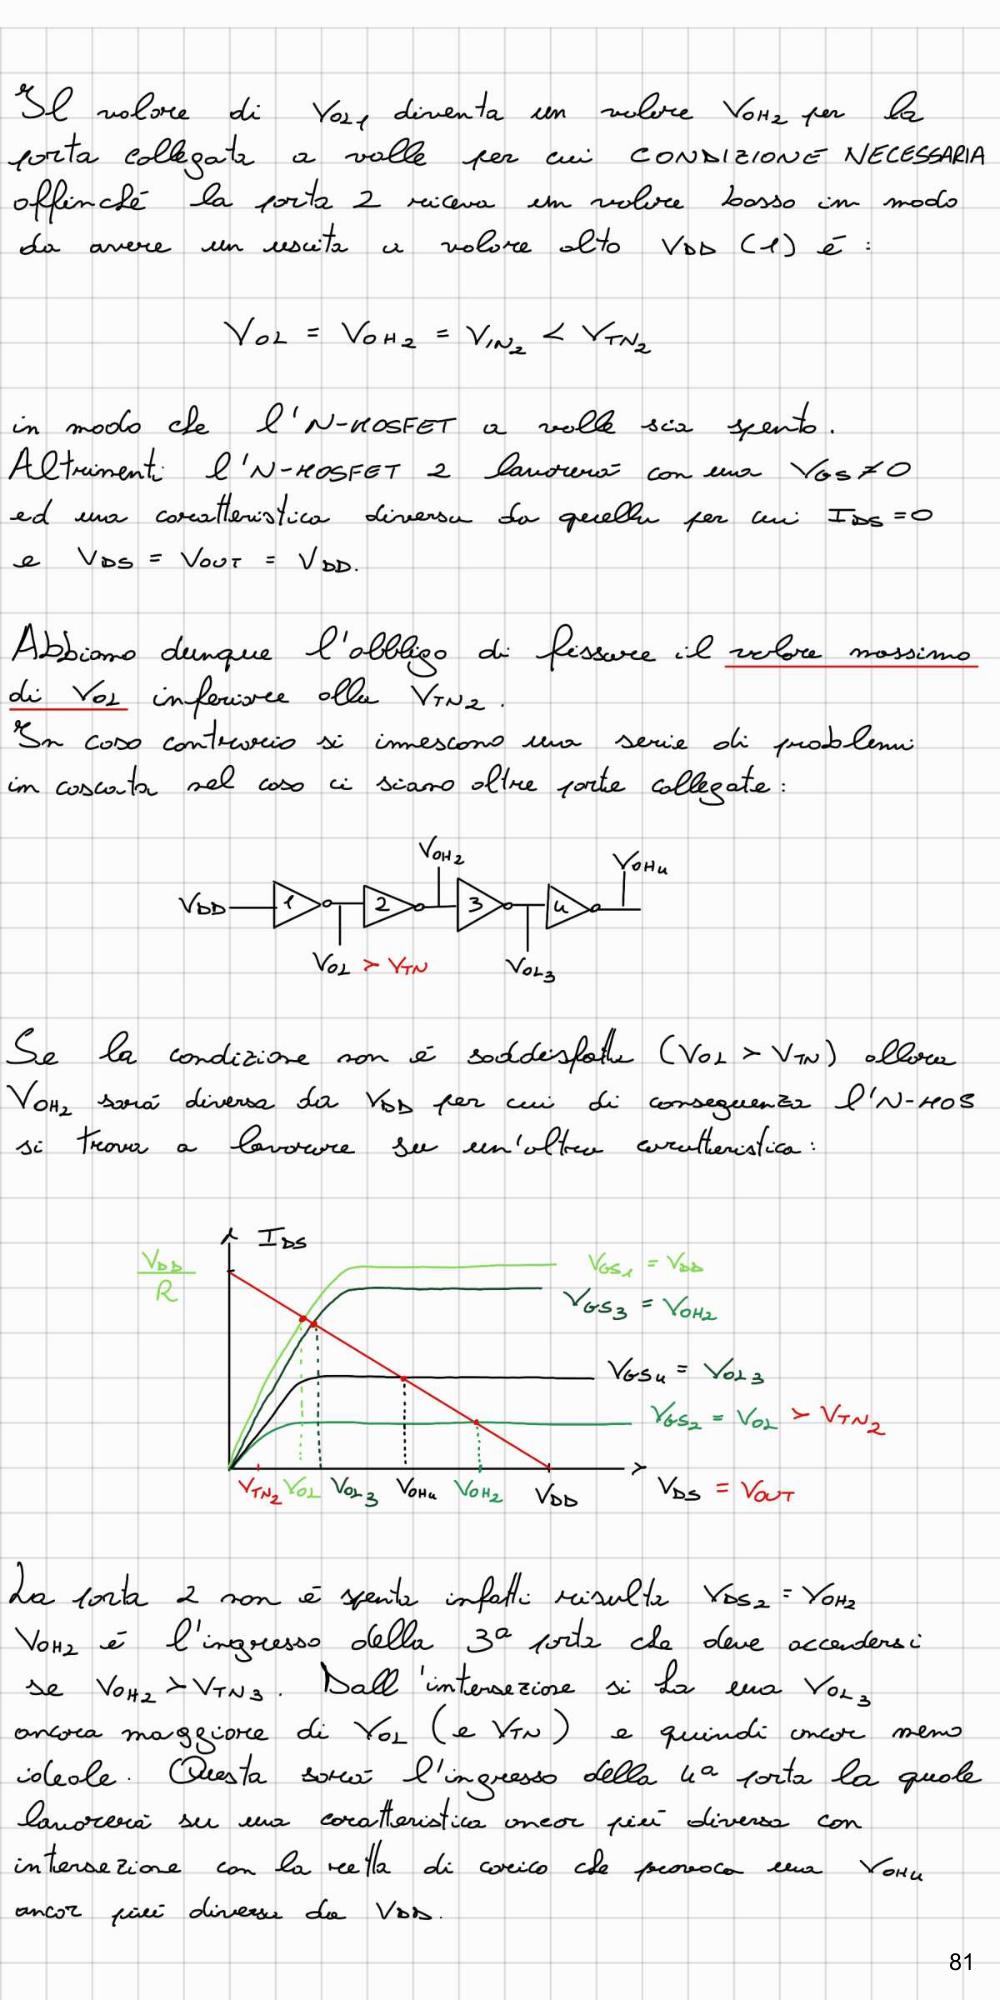 Il valore di VOL1 diventa un valore VOH2 per la
porta collegata a valle per cui CONDIZIONE NECESSARIA
affinché la porta 2 riceva un valore basso in modo
da avere un uscita a valore alto VDD (1) é :
VOL = VOH2 = VIN2 < VTN2
in modo che l'N-MOSFET a valle sia spento.
Altrimenti l'N-MOSFET 2 lavorerá con una VGS ≠ 0
ed una caratteristica diversa da quella per cui IDS = 0
e VDS = VOUT = VDD.
Abbiamo dunque l'obbligo di fissare il valore massimo
di VOL inferiore alla VTN2 .
In caso contrario si innescono una serie di problemi
in cascata nel caso ci siano altre porte collegate :
VOH2
VOH4
VDD 1 2 3 4
VOL > VTN VOL3
Se la condizione non é soddisfatta (VOL > VTN) allora
VOH2 sará diversa da VDD per cui di conseguenza l'N-MOS
si trova a lavorare su un'altra caratteristica :
IDS
VDD / R
VGS1 = VDD
VGS3 = VOH2
VGS4 = VOL3
VGS2 = VOL > VTN2
VTN2 VOL VOL3 VOH4 VOH2 VDD VDS = VOUT
La porta 2 non é spenta infatti risulta VDS2 = VOH2
VOH2 é l'ingresso della 3ª porta che deve accendersi
se VOH2 > VTN3 . Dall'intersezione si ha una VOL3
ancora maggiore di VOL (e VTN) e quindi ancor meno
ideale. Questa sará l'ingresso della 4ª porta la quale
lavorerá su una caratteristica ancor piú diversa con
intersezione con la retta di carico che provoca una VOH4
ancor piú diversa da VDD.
81